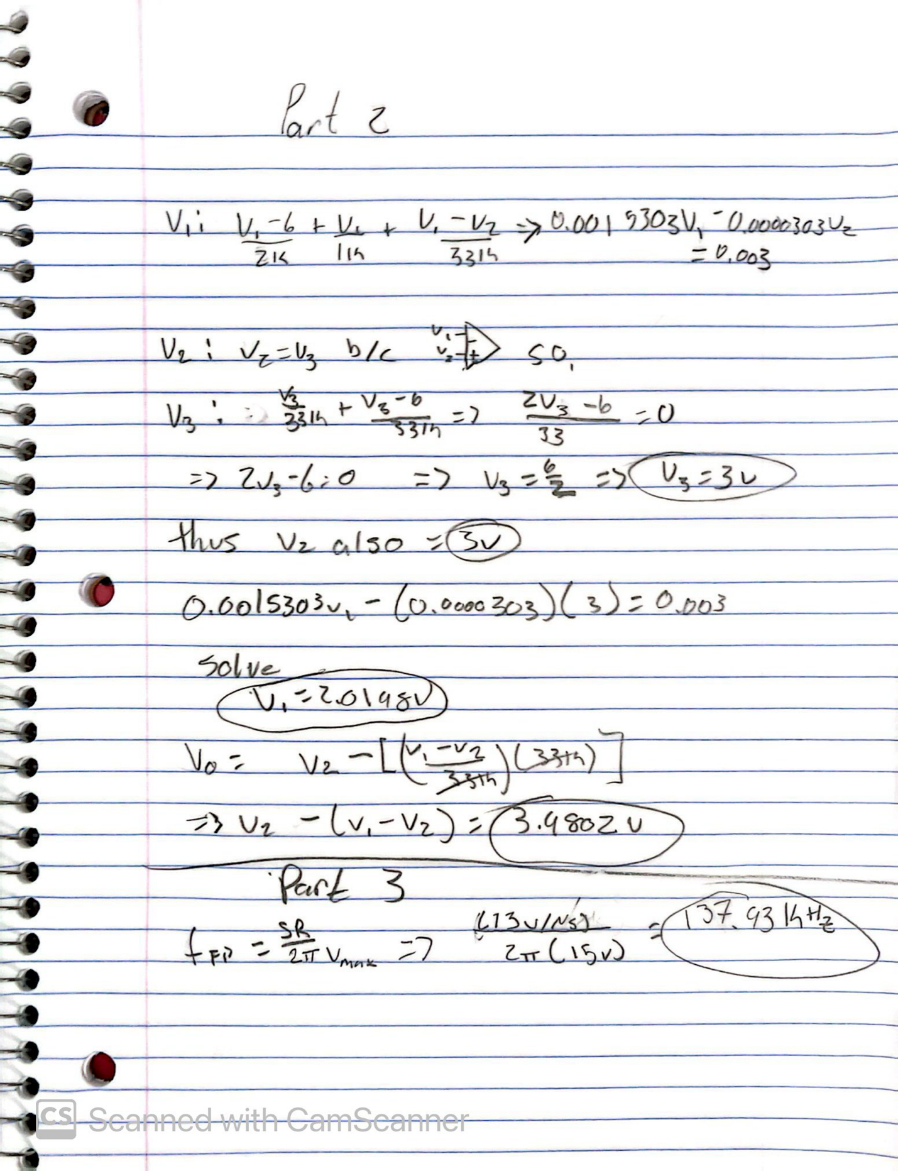 Part 2
V₁: (V₁-6)/2k + V₁/1k + (V₁-V₂)/33k => 0.0015303V₁ - 0.0000303V₂
= 0.003
V₂: V₂=V₃ b/c V₁ - V₂ + so,
V₃: V₃/33k + (V₃-6)/33k => (2V₃-6)/33 = 0
=> 2V₃-6=0 => V₃ = 6/2 => V₃ = 3v
thus V₂ also = 3v
0.0015303v₁ - (0.0000303)(3) = 0.003
Solve
V₁ = 2.0198V
V₀ = V₂ - [((V₁-V₂)/33k)(33k)]
=> V₂ - (V₁-V₂) = 3.9802 v
Part 3
f_FP = SR/(2π V_max) => (13v/μs)/(2π(15v)) = 137.93 kHz
CS Scanned with CamScanner